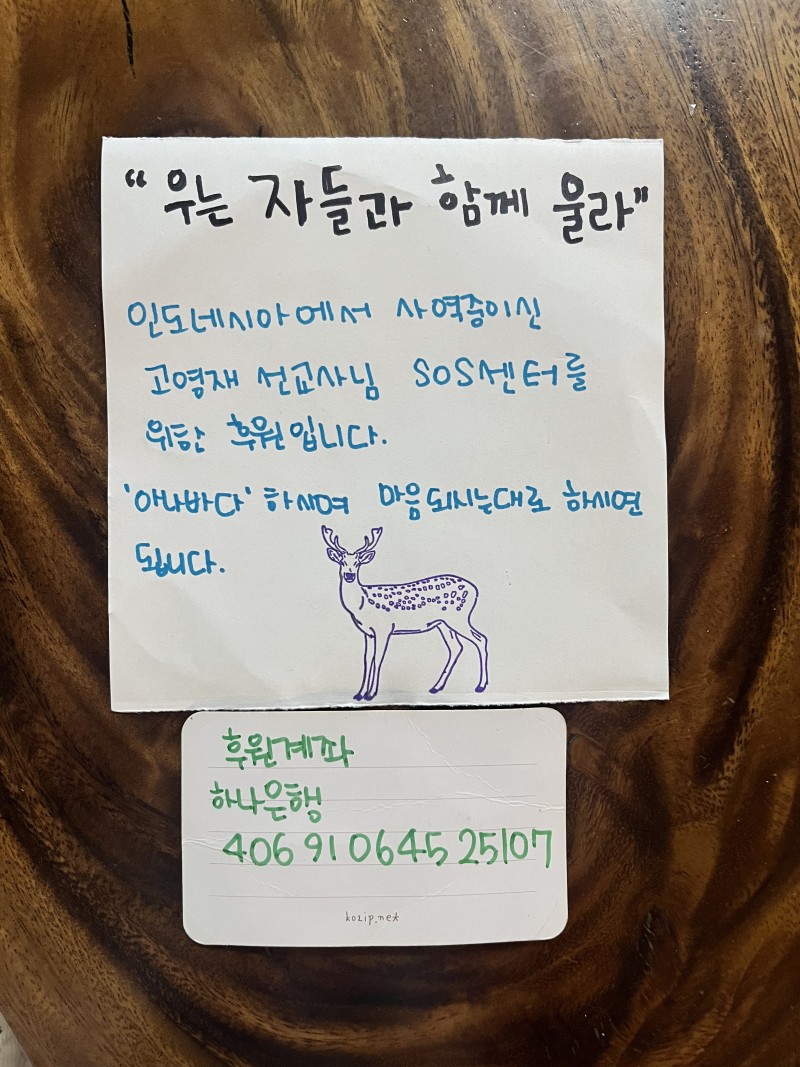 “우는 자들과 함께 울라”
인도네시아에서 사역중이신
고영재 선교사님 SOS센터를
위한 후원입니다.
'아나바다' 하시며 마음되시는대로 하시면
됩니다.
후원계좌
하나은행
406 91 0645 25107
kozip.net